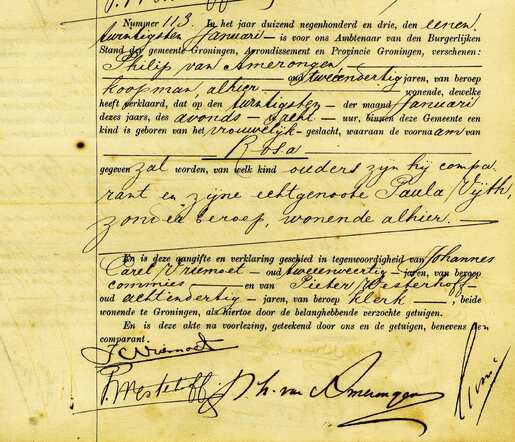 Nummer 113. In het jaar duizend negenhonderd en drie, den eenen
twintigsten Januari — is voor ons Ambtenaar van den Burgerlijken
Stand der gemeente Groningen, Arrondissement en Provincie Groningen, verschenen:
Philip van Amerongen, —
oud tweeendertig jaren, van beroep
koopman, alhier — wonende, dewelke
heeft verklaard, dat op den twintigsten — der maand Januari
dezes jaars, des avonds — acht — uur, binnen deze Gemeente een
kind is geboren van het vrouwelijk — geslacht, waaraan de voornaam van
— Rosa —
gegeven zal worden, van welk kind ouders zyn hy compa-
rant en zyne echtgenoote Paula Vyth,
zonder beroep, wonende alhier. —
En is deze aangifte en verklaring geschied in tegenwoordigheid van Johannes
Carel Vriemoet — oud tweeenveertig — jaren, van beroep
commies — en van Pieter Westerhoff —
oud achtendertig — jaren, van beroep klerk —, beide
wonende te Groningen, als hiertoe door de belanghebbende verzochte getuigen.
En is deze akte na voorlezing, geteekend door ons en de getuigen, benevens den
comparant.
JC Vriemoet
P. Westerhoff Ph. van Amerongen